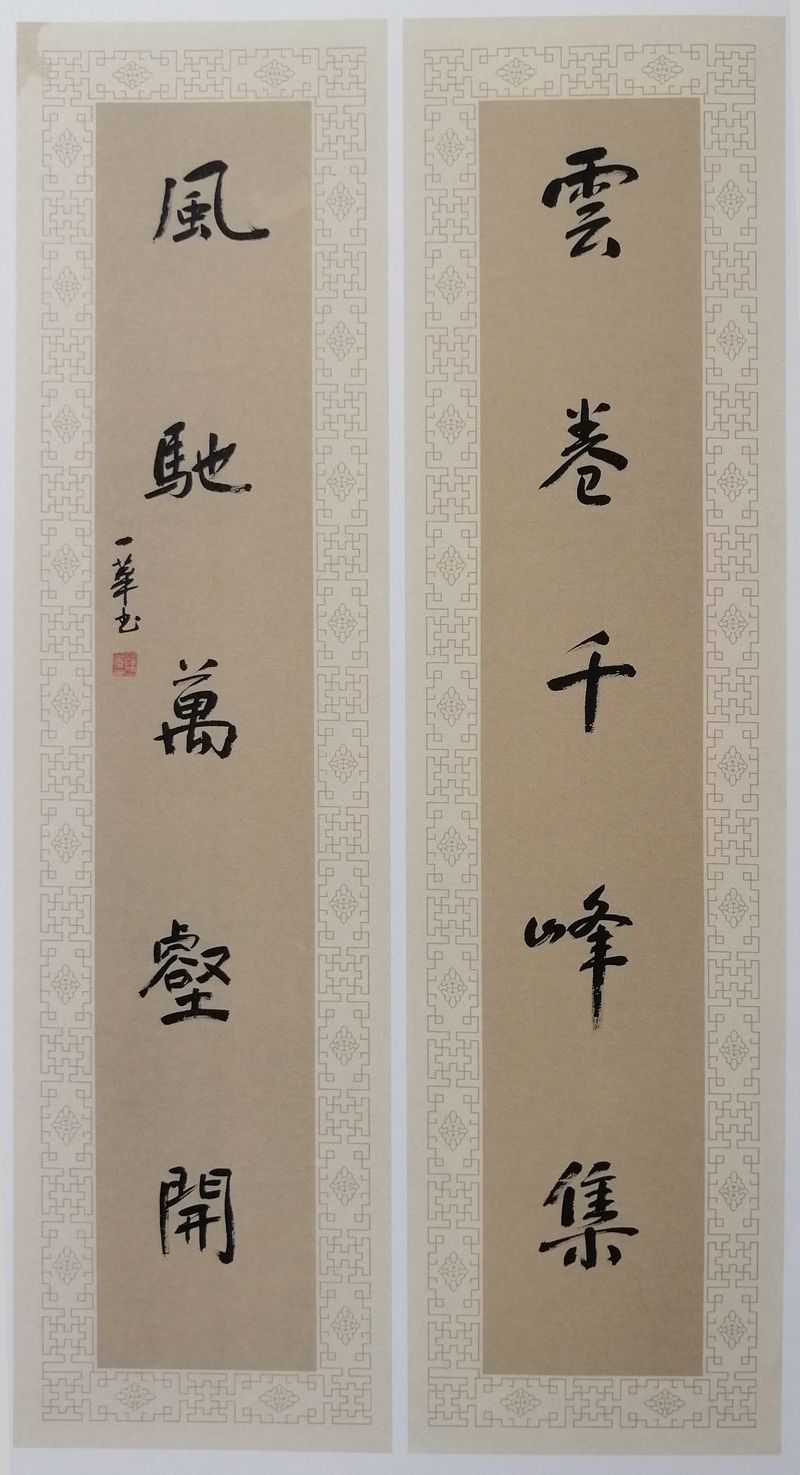 雲卷千峰集
風馳萬壑開
一華书